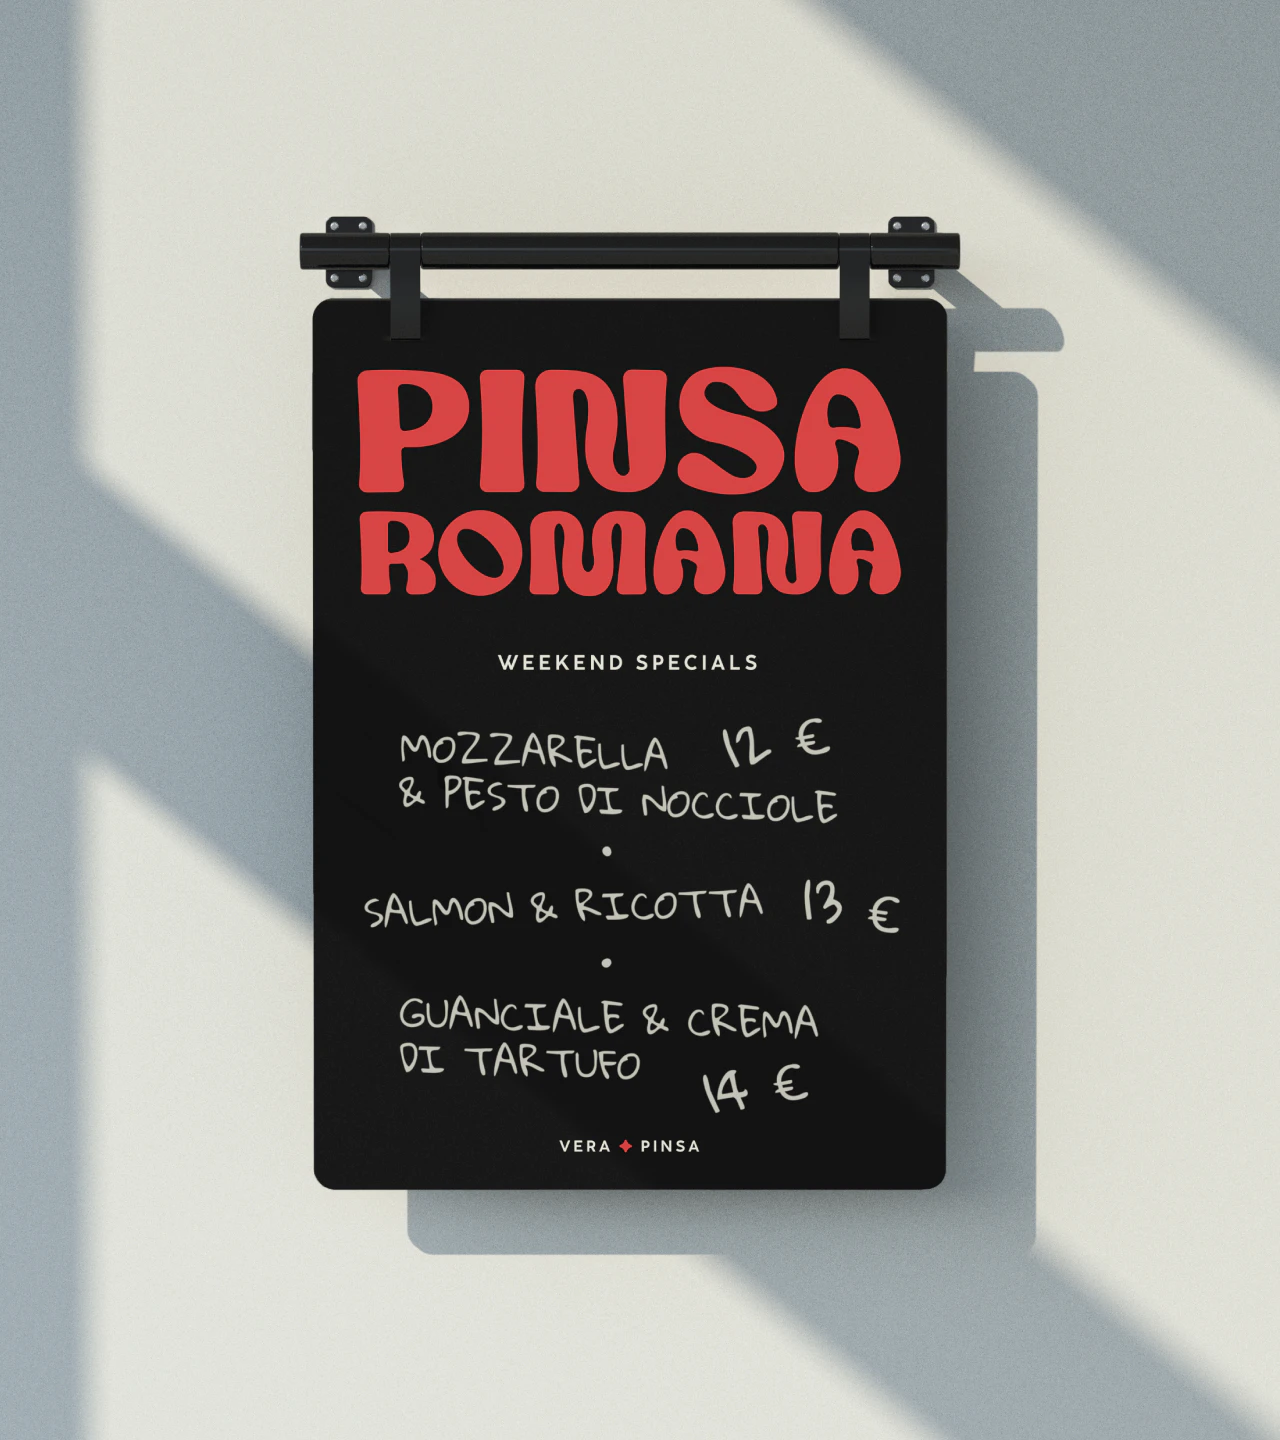 PINSA
ROMANA
WEEKEND SPECIALS
MOZZARELLA 12 €
& PESTO DI NOCCIOLE
•
SALMON & RICOTTA 13 €
•
GUANCIALE & CREMA
DI TARTUFO
14 €
VERA ✦ PINSA